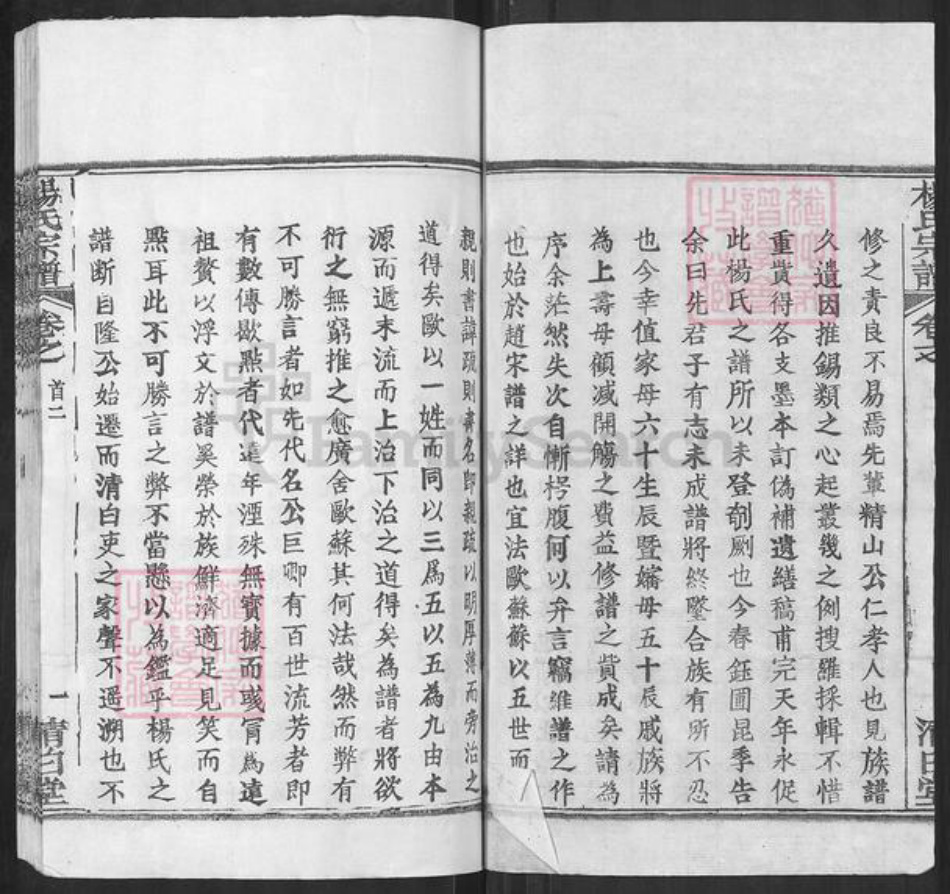 楊氏宗譜
卷之
清白堂
修之責良不易焉先輩精山公仁孝人也見族譜
久遺因推錫類之心起叢幾之例搜羅採輯不惜
重貲得各支墨本訂偽補遺繕稿甫完天年永促
此楊氏之譜所以未登剞劂也今春鈺圃昆季告
余曰先君子有志未成譜將終墜合族有所不忍
也今幸值家母六十生辰暨嬸母五十辰戚族將
為上壽母顧減開觴之費益修譜之貲成矣請為
序余茫然失次自慚枵腹何以弁言竊維譜之作
也始於趙宋譜之詳也宜法歐蘇蘇以五世而
親則書諱疏則書名即親疏以明厚薄而旁治之
道得矣歐以一姓而同以三為五以五為九由本
源而遞末流而上治下治之道得矣為譜者將欲
衍之無窮推之愈廣舍歐蘇其何法哉然而弊有
不可勝言者如先代名公巨卿有百世流芳者即
有數傳歇㸃者代遠年湮殊無實據而彧冐為遠
祖贅以浮文於譜異榮於族鮮濟適足見笑而自
㸃耳此不可勝言之弊不當懸以為鑑乎楊氏之
譜斷自隆公始遷而清白吏之家聲不遥溯也不
楊氏宗譜
卷之
首二
一
清白堂
FamilySearch